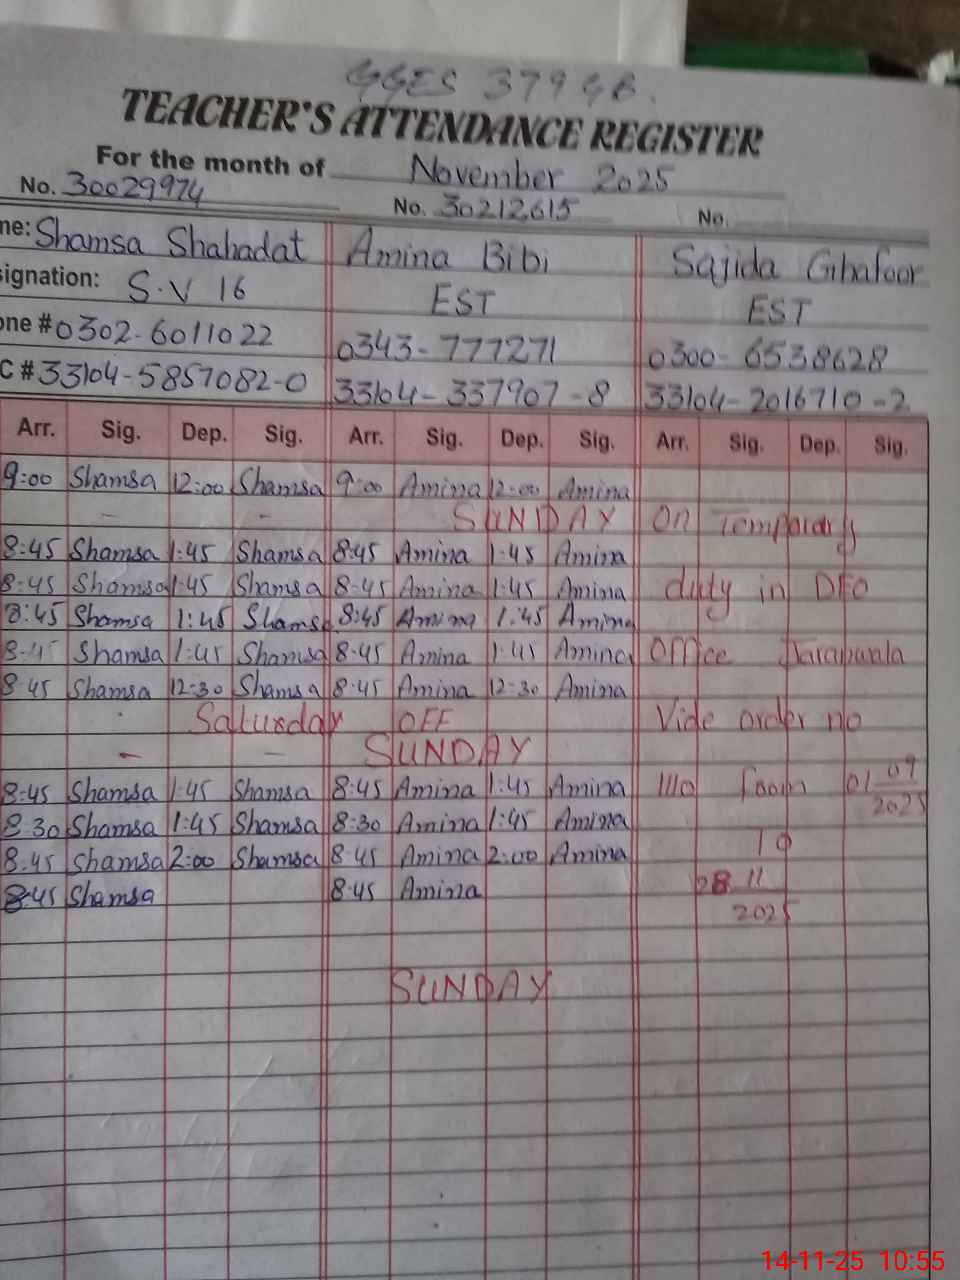 GGES 379 GB.
TEACHER'S ATTENDANCE REGISTER
For the month of November 2025
No. 30029974 No. 30212615 No.
ne: Shamsa Shahadat Amina Bibi Sajida Ghafoor
signation: S.V 16 EST EST
one # 0302-6011022 0343-777271 0300-6538628
C # 33104-5857082-0 33104-337907-8 33104-2016710-2
Arr. Sig. Dep. Sig. Arr. Sig. Dep. Sig. Arr. Sig. Dep. Sig.
9:00 Shamsa 12:00 Shamsa 9:00 Amina 12:00 Amina
- - SUNDAY On Temporary
8:45 Shamsa 1:45 Shamsa 8:45 Amina 1:45 Amina
8:45 Shamsa 1:45 Shamsa 8-45 Amina 1:45 Amina duty in DEO
8:45 Shamsa 1:45 Shamsa 8:45 Amina 1:45 Amina
8-45 Shamsa 1:45 Shamsa 8-45 Amina 1:45 Amina Office Jaranwala
8:45 Shamsa 12-30 Shamsa 8-45 Amina 12-30 Amina
Saturday OFF Vide order no
- - SUNDAY
8:45 Shamsa 1:45 Shamsa 8:45 Amina 1:45 Amina from 01 09 2025
8:30 Shamsa 1:45 Shamsa 8:30 Amina 1:45 Amina
8:45 Shamsa 2:00 Shamsa 8:45 Amina 2:00 Amina To
8:45 Shamsa 8:45 Amina 28 11
2025
SUNDAY
14-11-25 10:55